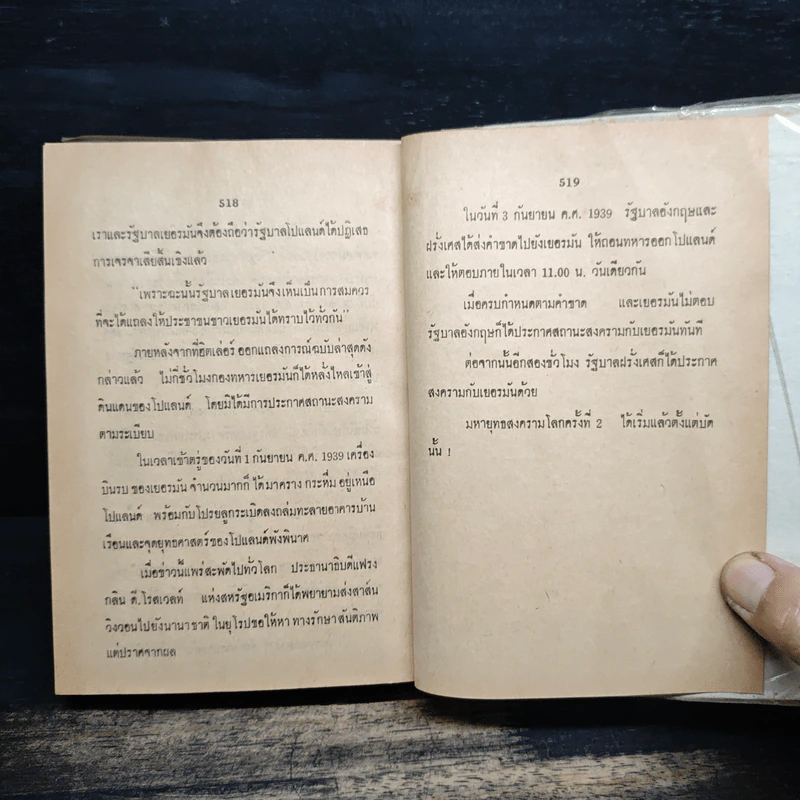 518
เราและรัฐบาลเยอรมันจึงต้องถือว่ารัฐบาลโปแลนด์ได้ปฏิเสธ
การเจรจาเสียสิ้นเชิงแล้ว
"เพราะฉะนั้นรัฐบาลเยอรมันจึงเห็นเป็นการสมควร
ที่จะได้แถลงให้ประชาชนชาวเยอรมันได้ทราบไว้ทั่วกัน"
ภายหลังจากที่ฮิตเล่อร์ ออกแถลงการณ์ฉบับล่าสุดดัง
กล่าวแล้ว ไม่กี่ชั่วโมงกองทหารเยอรมันก็ได้หลั่งไหลเข้าสู่
ดินแดนของโปแลนด์ โดยมิได้มีการประกาศสถานะสงคราม
ตามระเบียบ
ในเวลาเช้าตรู่ของวันที่ 1 กันยายน ค.ศ. 1939 เครื่อง
บินรบ ของเยอรมัน จำนวนมากก็ ได้ มาคราง กระหึ่ม อยู่เหนือ
โปแลนด์ พร้อมกับโปรยลูกระเบิดลงถล่มทะลายอาคารบ้าน
เรือนและจุดยุทธศาสตร์ของโปแลนด์พังพินาศ
เมื่อข่าวนี้แพร่สะพัดไปทั่วโลก ประธานาธิบดีแฟรง
กลิน ดี. โรสเวลท์ แห่งสหรัฐอเมริกาก็ได้พยายามส่งสาส์น
วิงวอนไปยังนานาชาติ ในยุโรปขอให้หา ทางรักษา สันติภาพ
แต่ปราศจากผล
519
ในวันที่ 3 กันยายน ค.ศ. 1939 รัฐบาลอังกฤษและ
ฝรั่งเศสได้ส่งคำขาดไปยังเยอรมัน ให้ถอนทหารออกโปแลนด์
และให้ตอบภายในเวลา 11.00 น. วันเดียวกัน
เมื่อครบกำหนดตามคำขาด และเยอรมันไม่ตอบ
รัฐบาลอังกฤษก็ได้ประกาศสถานะสงครามกับเยอรมันทันที
ต่อจากนั้นอีกสองชั่วโมง รัฐบาลฝรั่งเศสก็ได้ประกาศ
สงครามกับเยอรมันด้วย
มหายุทธสงครามโลกครั้งที่ 2 ได้เริ่มแล้วตั้งแต่บัด
นั้น !